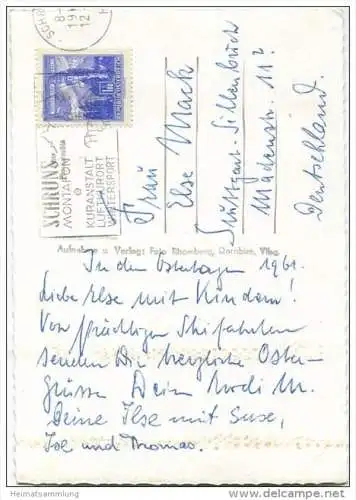 SCHRUNS
MONTAFON
KURANSTALT
LUFTKURORT
WINTERSPORT
Frau
Else Mack
Stuttgart-Sillenbuch
Deutschland.
Aufnahme u. Verlag: Foto Rhomberg, Dornbirn, Vlbg.
In den Ostertagen 1961.
Liebe Else mit Kindern!
Von prächtigen Skifahrten
senden Dir herzliche Oster-
grüsse Deine
Deine Ilse mit Suse,
und Thomas.
© Heimatsammlung